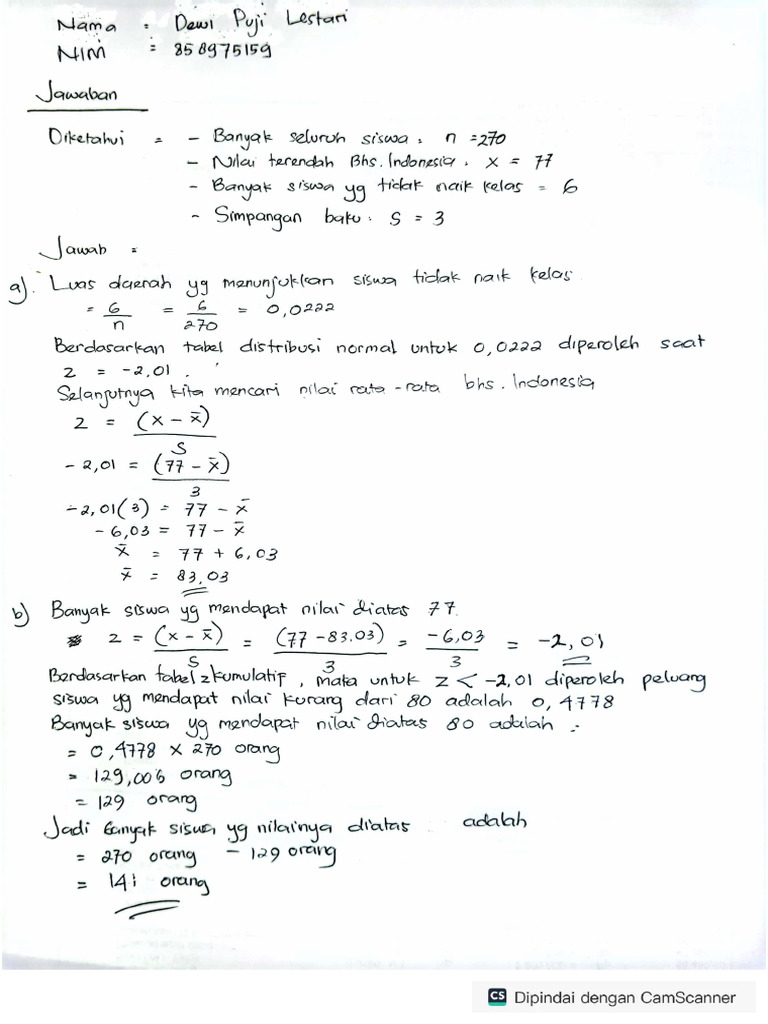 Nama : Dewi Puji Lestari
NIM : 858975159
Jawaban
Diketahui = - Banyak seluruh siswa : n = 270
- Nilai terendah Bhs. Indonesia : x = 77
- Banyak siswa yg tidak naik kelas = 6
- Simpangan baku : S = 3
Jawab =
a). Luas daerah yg menunjukkan siswa tidak naik kelas
= 6/n = 6/270 = 0,0222
Berdasarkan tabel distribusi normal untuk 0,0222 diperoleh saat
z = -2,01.
Selanjutnya kita mencari nilai rata-rata bhs. Indonesia
z = (x - x̄)/S
-2,01 = (77 - x̄)/3
-2,01(3) = 77 - x̄
-6,03 = 77 - x̄
x̄ = 77 + 6,03
x̄ = 83,03
b) Banyak siswa yg mendapat nilai diatas 77.
z = (x - x̄)/S = (77 - 83,03)/3 = -6,03/3 = -2,01
Berdasarkan tabel z kumulatif, maka untuk z < -2,01 diperoleh peluang
siswa yg mendapat nilai kurang dari 80 adalah 0,4778
Banyak siswa yg mendapat nilai diatas 80 adalah :
= 0,4778 x 270 orang
= 129,006 orang
= 129 orang
Jadi banyak siswa yg nilainya diatas adalah
= 270 orang - 129 orang
= 141 orang
CS Dipindai dengan CamScanner